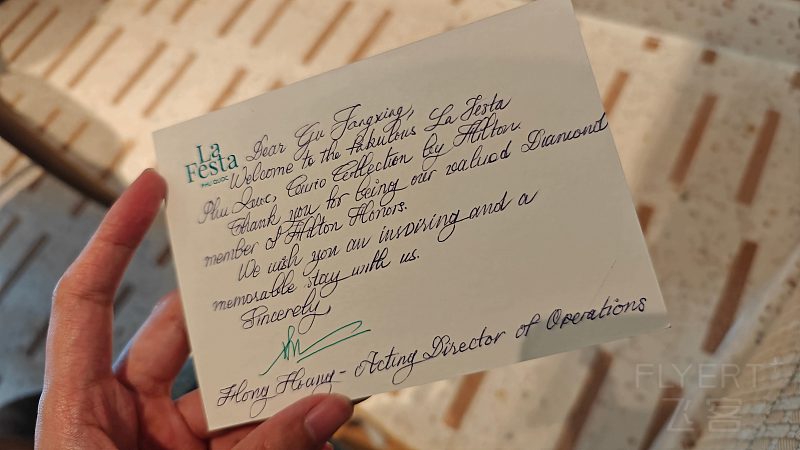 La
Festa
PHU QUOC
Dear Gu Fangxing,
Welcome to the fabulous La Festa
Phu Quoc, Curio Collection by Hilton.
Thank you for being our valued Diamond
member of Hilton Honors.
We wish you an inspiring and a
memorable stay with us.
Sincerely
Hong Hoang - Acting Director of Operations
FLYERT
飞客